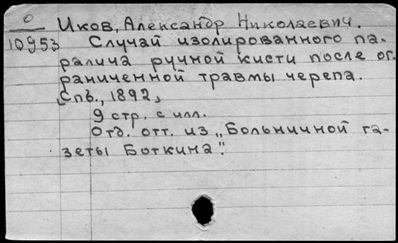 0 Иков, Александр Николаевич.
10953 Случай изолированного па-
ралича ручной кисти после ог-
раниченной травмы черепа.
Спб., 1892,
9 стр. с илл.
Отд. отт. из „Больничной га-
зеты Боткина".